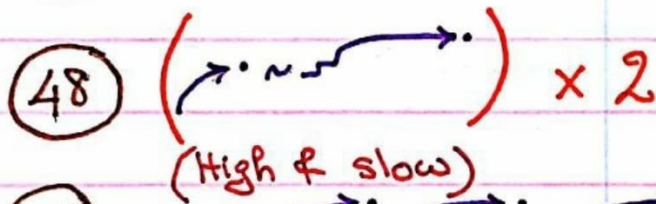 48 ( ) x 2
(High & slow)